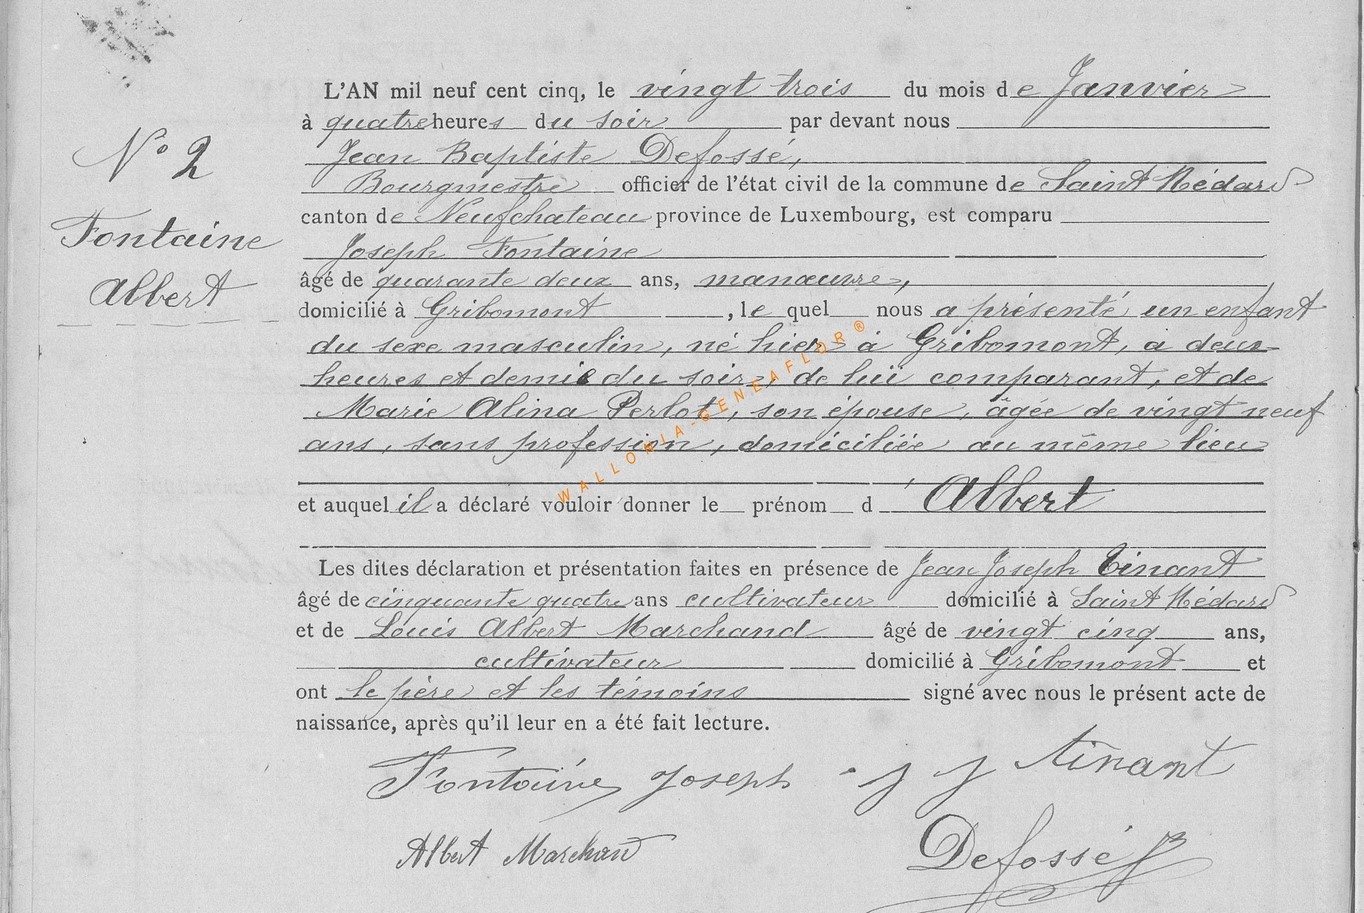 N° 2
Fontaine
Albert
L'AN mil neuf cent cinq, le vingt trois du mois de Janvier
à quatre heures du soir par devant nous
Jean Baptiste Defossé,
Bourgmestre officier de l'état civil de la commune de Saint Médard
canton de Neufchateau province de Luxembourg, est comparu
Joseph Fontaine
âgé de quarante deux ans, manœuvre,
domicilié à Gribomont, le quel nous a présenté un enfant
du sexe masculin, né hier à Gribomont, à deux
heures et demie du soir, de lui comparant, et de
Marie Alina Perlot, son épouse, âgée de vingt neuf
ans, sans profession, domiciliée au même lieu
et auquel il a déclaré vouloir donner le prénom d Albert
Les dites déclaration et présentation faites en présence de Jean Joseph Tinant
âgé de cinquante quatre ans cultivateur domicilié à Saint Médard
et de Louis Albert Marchand âgé de vingt cinq ans,
cultivateur domicilié à Gribomont et
ont le père et les témoins signé avec nous le présent acte de
naissance, après qu'il leur en a été fait lecture.
Fontaine Joseph J J Tinant
Albert Marchand Defossé
WALLONIA-GENEAFLOR®